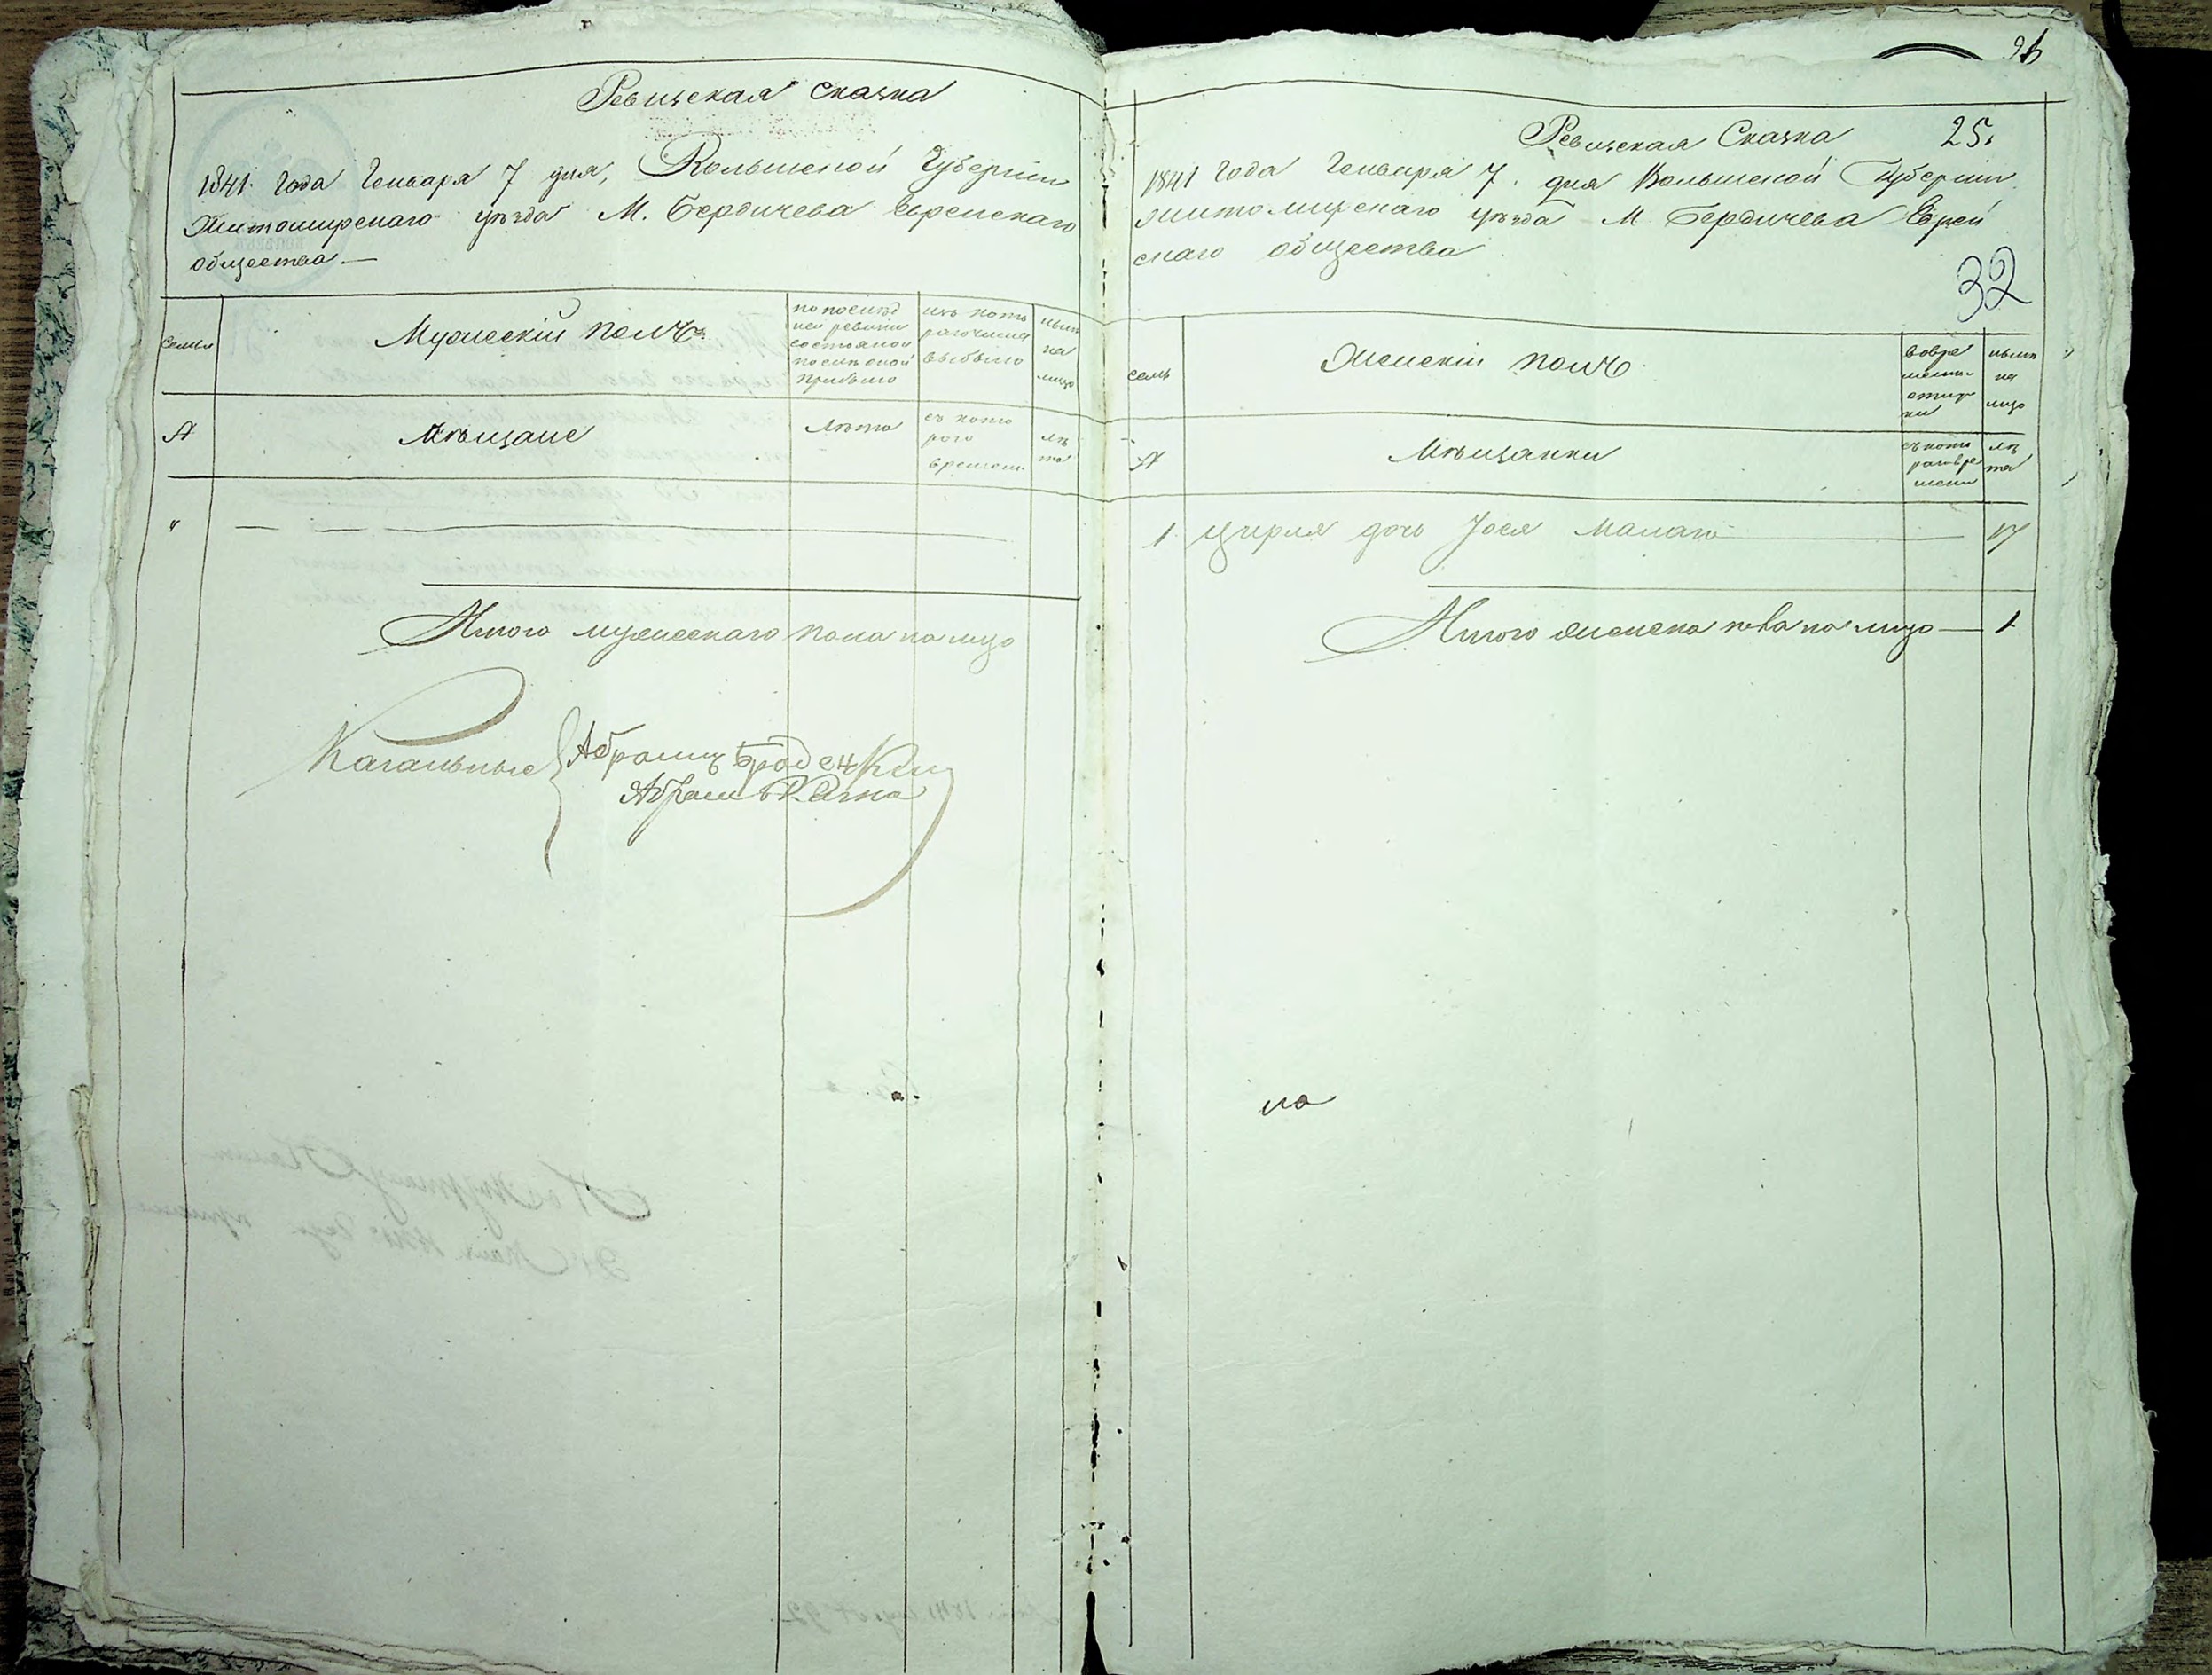 Ревизская сказка
1841 года Генваря 7 дня, Волынской Губернии
Житомирскаго уѣзда М. Бердичева Еврейскаго
общества —
семьи
Мужескій полъ
по послѣд
ней ревизіи
состояло и
послѣ оной
прибыло
изъ того
числа
выбыло
нынѣ
на
лицо
№
Мѣщане
лѣта
съ кото
раго
времени
лѣ
та
"
Итого мужескаго пола на лицо
Кагальные
Абрамъ Бродецкий
Абрамъ
96
Ревизская Сказка 25.
1841 года Генваря 7. дня Волынской Губернии
Житомирскаго уѣзда М. Бердичева Еврей
скаго общества
32
семьи
Женскій полъ
во вре
менной
отлуч
ки
нынѣ
на
лицо
№
Мѣщанки
съ кото
раго вре
мени
лѣ
та
1 Цирля дочь Іося Малаго — 17
Итого женска пола на лицо — 1
на